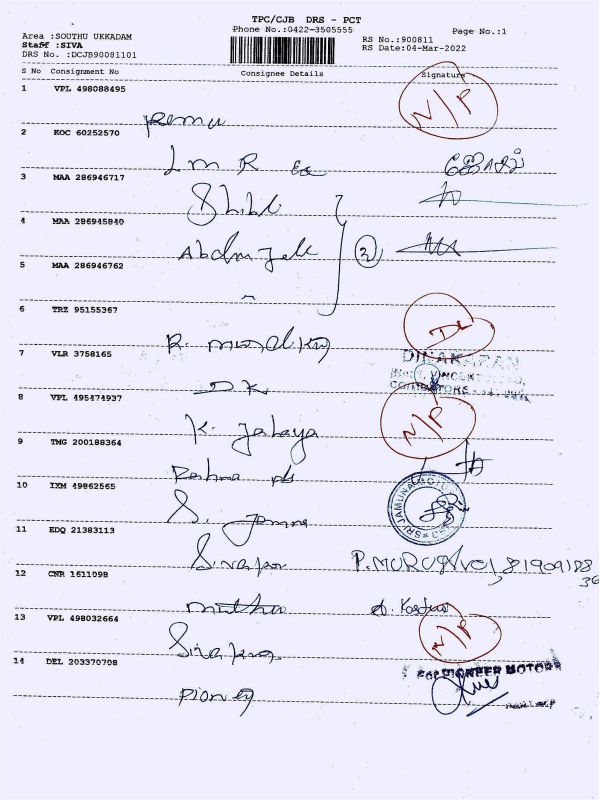 TPC/CJB DRS - PCT
Phone No.:0422-3505555
Page No.:1
Area :SOUTHU UKKADAM
Staff :SIVA
DRS No. :DCJB90081101
RS No.:900811
RS Date:04-Mar-2022
S No Consignment No Consignee Details Signature
1 VPL 498088495 N/P
Remu
2 KOC 60252570
L M R
3 MAA 286946717
Shibu
4 MAA 286945840
2
5 MAA 286946762
6 TRZ 95155367 DL
R.
7 VLR 3758165 DINAKARAN
COIMBATORE
D K
8 VPL 495474937 N/P
K. Jahaya
9 TMG 200188364
Reshma
10 IXM 49862565
SRI JAMUNA
S. Jamna
11 EDQ 21383113
P. MURUGAVEL,
12 CNR 1611098
Muthu
13 VPL 498032664 N/P
14 DEL 203370708
PIONEER MOTORS